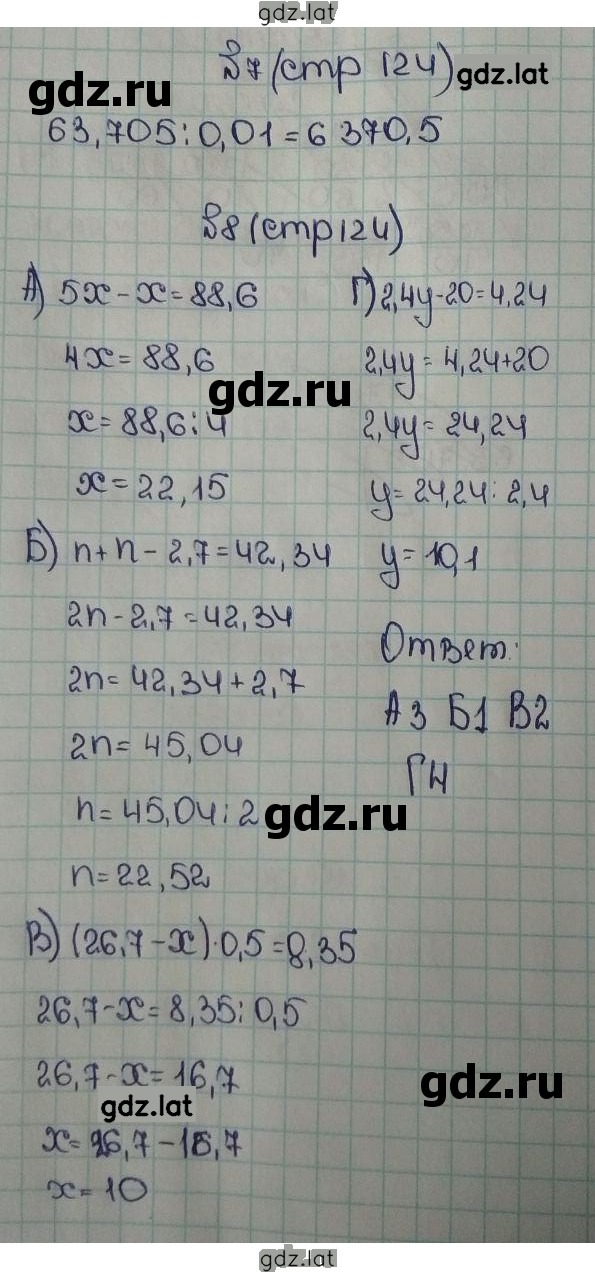 gdz.lat
№7 (стр 124) gdz.lat
gdz.ru
63,705:0,01=6 370,5
№8 (стр 124)
А) 5x-x=88,6
4x=88,6
gdz.ru
x=88,6:4
x=22,15
Б) n+n-2,7=42,34
2n-2,7=42,34
2n=42,34+2,7
2n=45,04
n=45,04:2
gdz.ru
n=22,52
В) (26,7-x)·0,5=8,35
26,7-x=8,35:0,5
26,7-x=16,7
gdz.lat
gdz.ru
x=26,7-16,7
x=10
Г) 2,4y-20=4,24
2,4y=4,24+20
2,4y=24,24
y=24,24:2,4
y=10,1
Ответ:
А3 Б1 В2
Г4
gdz.lat